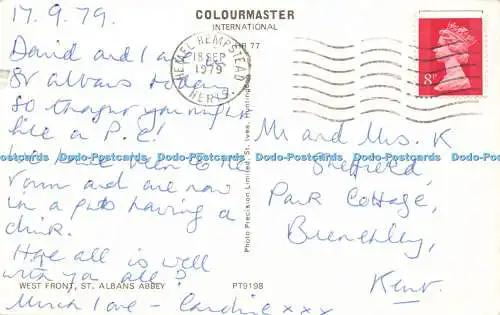 17.9.79.
David and I are in
St albans today
So thought you might
like a P.C!
We have been to the
and are now
in a pub having a
drink.
Hope all is well
with you all?
Much love - Caroline xxx
WEST FRONT, ST. ALBANS ABBEY
PT9198
COLOURMASTER
INTERNATIONAL
Photo Precision Limited, St. Ives, Huntingdon
HEMEL HEMPSTEAD
18 SEP
1979
HERTS.
8P
Mr and Mrs. K
Sheffield,
Park Cottage,
Brenchley,
Kent.
Dodo-Postcards Dodo-Postcards Dodo-Postcards Dodo-Postcards Dodo-Postcards Dodo-Postcards